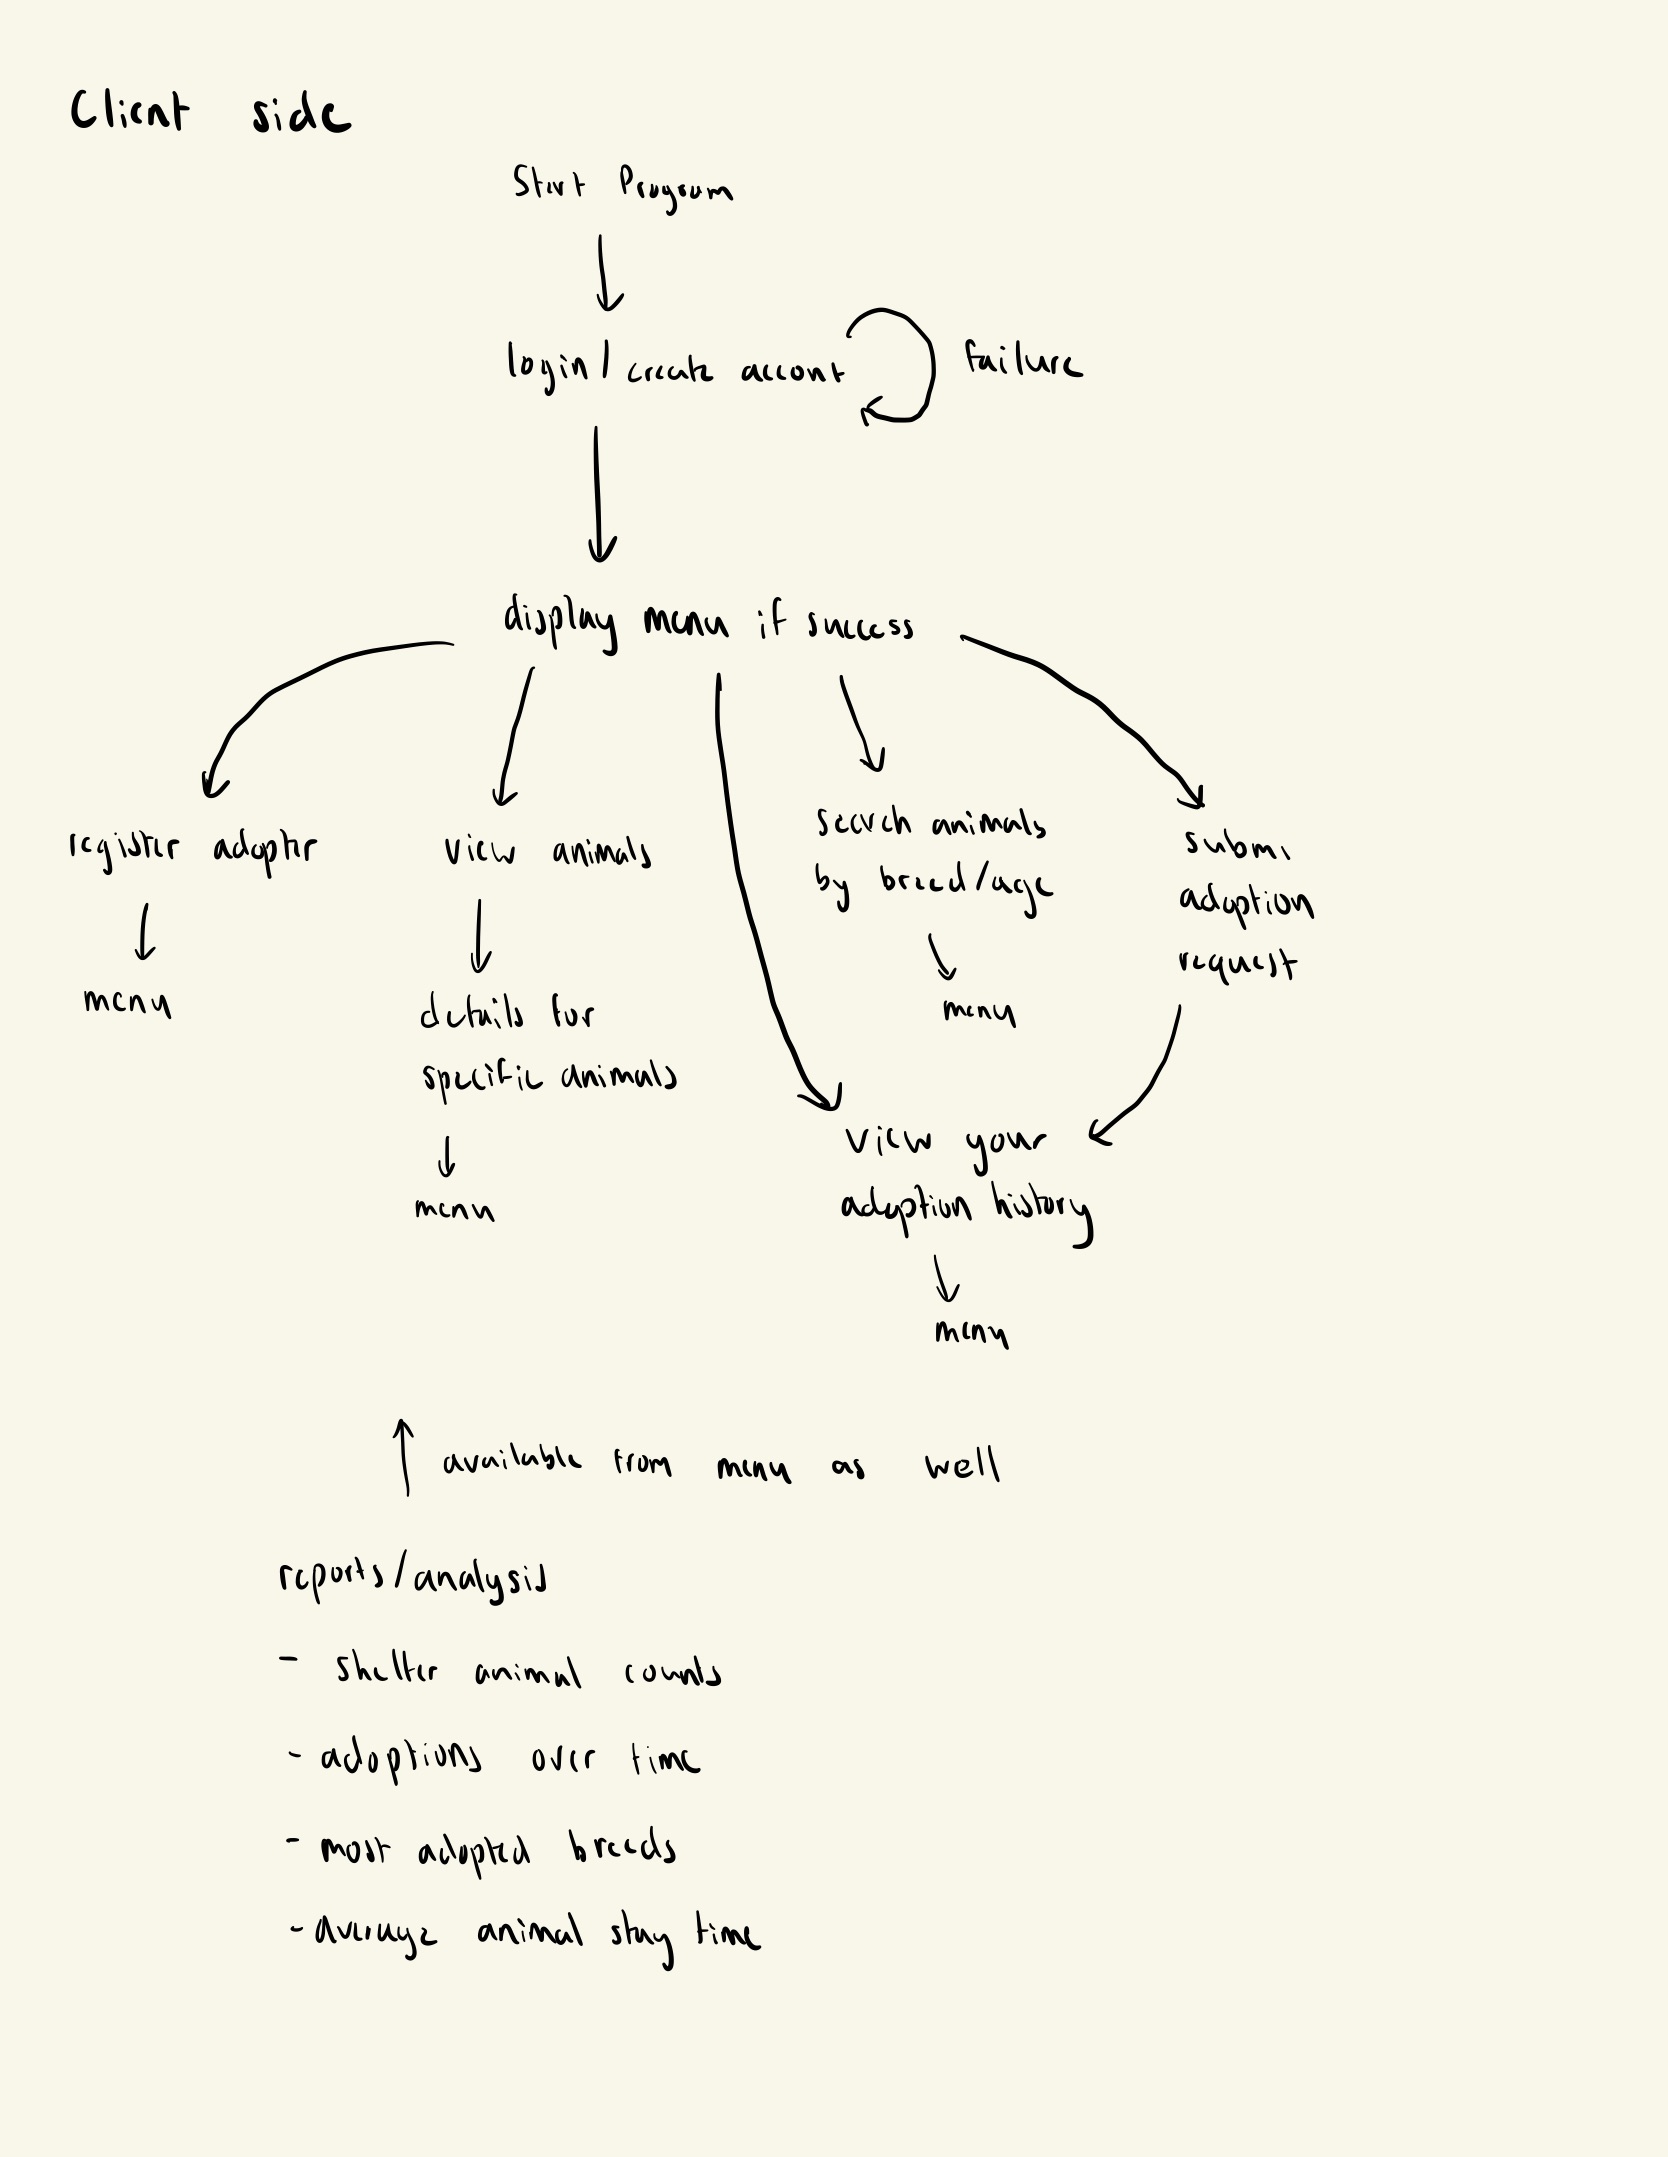 Client side
Start Program
login/create accont
failure
display menu if success
register adopter
menu
view animals
details for
specific animals
menu
search animals
by breed/age
menu
submi
adoption
request
view your
adoption history
menu
↑ available from menu as well
reports/analysis
- shelter animal counts
- adoptions over time
- most adopted breeds
- average animal stay time